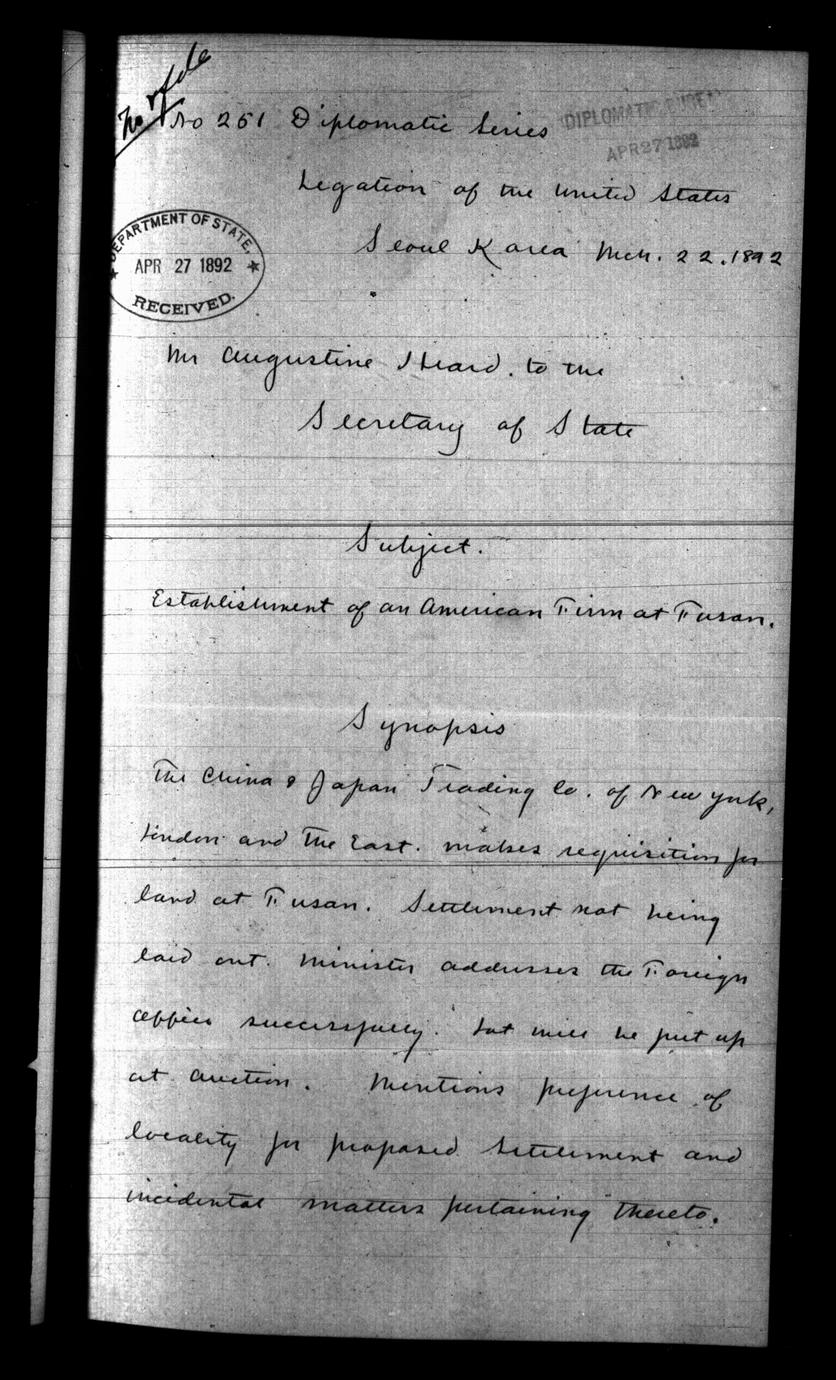 No 251 Diplomatic Series
DIPLOMATIC BUREAU
APR 27 1892
Legation of the United States
Seoul Korea Mch. 22. 1892
DEPARTMENT OF STATE.
APR 27 1892
RECEIVED.
Mr Augustine Heard. to the
Secretary of State
Subject.
Establishment of an American Firm at Fusan.
Synopsis
The China & Japan Trading Co. of New York,
London and the East. makes requisition for
land at Fusan. Settlement not being
laid out. Minister addresses the Foreign
Office successfully. Lot will be put up
at auction. Mentions preference of
locality for proposed settlement and
incidental matters pertaining thereto.